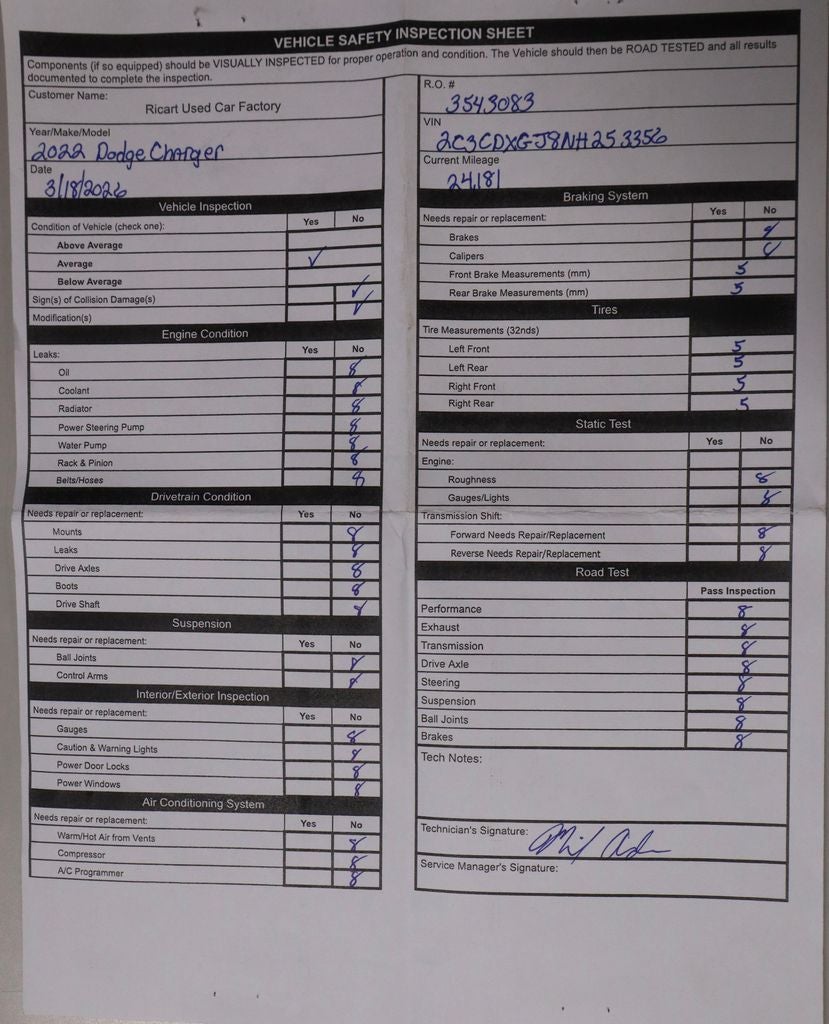 VEHICLE SAFETY INSPECTION SHEET
Components (if so equipped) should be VISUALLY INSPECTED for proper operation and condition. The Vehicle should then be ROAD TESTED and all results
documented to complete the inspection.
Customer Name:
Ricart Used Car Factory
Year/Make/Model
2022 Dodge Charger
Date
3/18/2026
Vehicle Inspection
Condition of Vehicle (check one): Yes No
Above Average
Average ✓
Below Average
Sign(s) of Collision Damage(s) ✓
Modification(s) ✓
Engine Condition
Leaks: Yes No
Oil 8
Coolant 8
Radiator 8
Power Steering Pump 8
Water Pump 8
Rack & Pinion 8
Belts/Hoses 8
Drivetrain Condition
Needs repair or replacement: Yes No
Mounts 8
Leaks 8
Drive Axles 8
Boots 8
Drive Shaft 8
Suspension
Needs repair or replacement: Yes No
Ball Joints 8
Control Arms 8
Interior/Exterior Inspection
Needs repair or replacement: Yes No
Gauges 8
Caution & Warning Lights 8
Power Door Locks 8
Power Windows 8
Air Conditioning System
Needs repair or replacement: Yes No
Warm/Hot Air from Vents 8
Compressor 8
A/C Programmer 8
R.O. #
3543083
VIN
2C3CDXGJ8NH253356
Current Mileage
24,181
Braking System
Needs repair or replacement: Yes No
Brakes
Calipers
Front Brake Measurements (mm) 5
Rear Brake Measurements (mm) 5
Tires
Tire Measurements (32nds)
Left Front 5
Left Rear 5
Right Front 5
Right Rear 5
Static Test
Needs repair or replacement: Yes No
Engine:
Roughness 8
Gauges/Lights 8
Transmission Shift:
Forward Needs Repair/Replacement 8
Reverse Needs Repair/Replacement 8
Road Test
Pass Inspection
Performance 8
Exhaust 8
Transmission 8
Drive Axle 8
Steering 8
Suspension 8
Ball Joints 8
Brakes 8
Tech Notes:
Technician's Signature:
Service Manager's Signature: